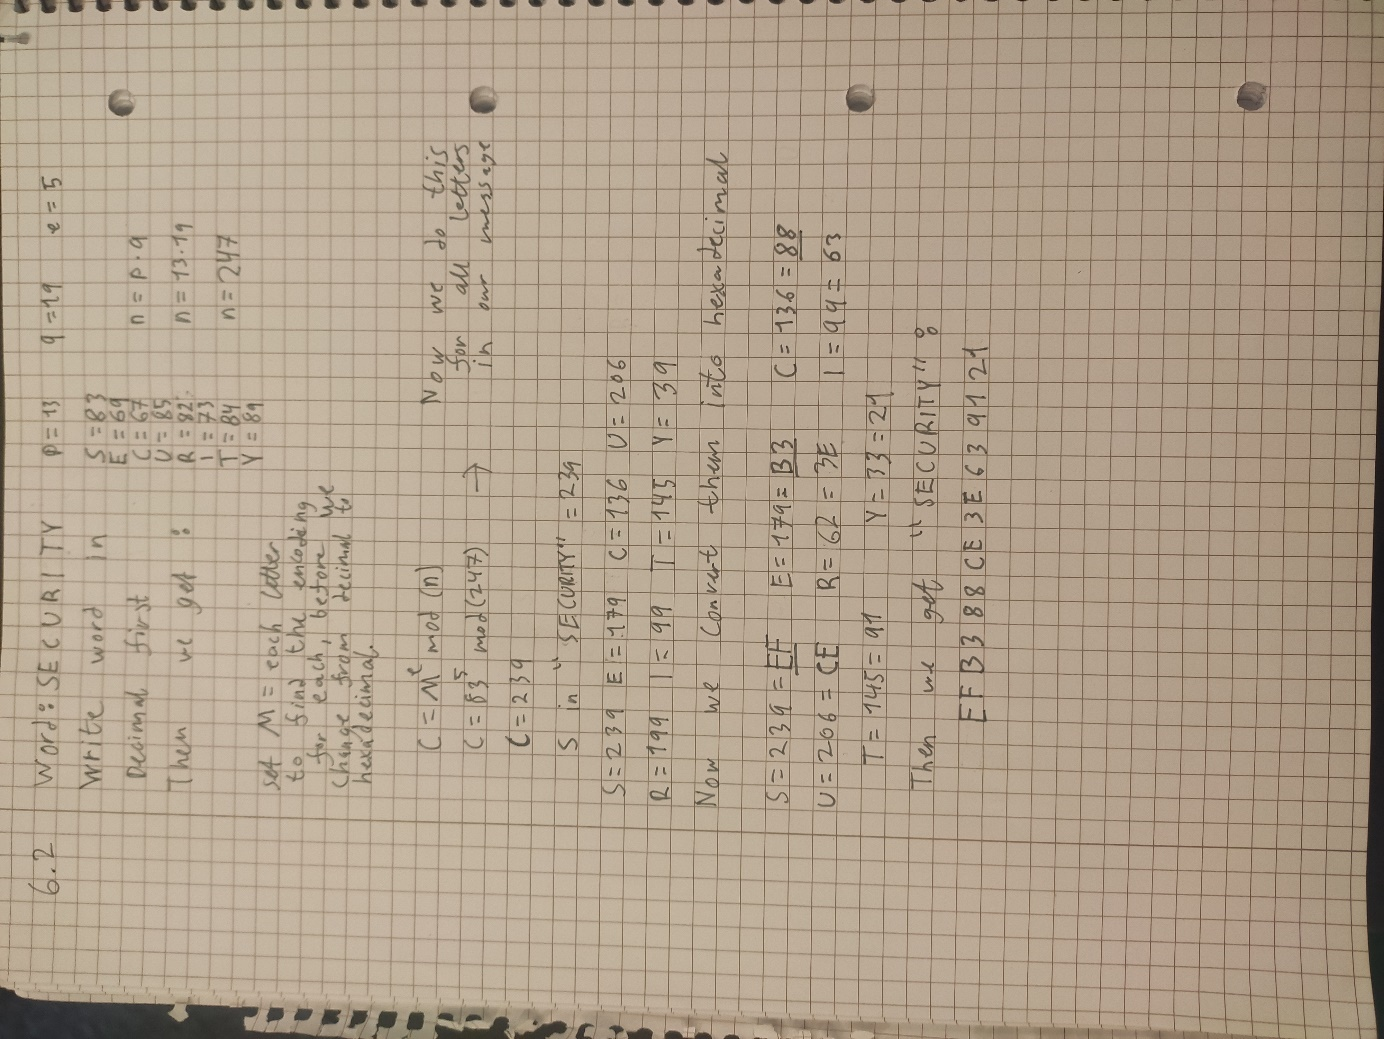 6.2 Word: SECURITY p=13 q=19 e=5
Write word in S=83
Decimal first E=69
Them we get: C=67 n=p·q
U=85
R=82 n=13·19
I=73
T=84 n=247
Y=89
set M = each letter
to find the encoding
for each, before we
change from decimal to
hexadecimal.
C = M^e mod (n) Now we do this
C = 83^5 mod (247) → for all letters
C = 239 in our message
S in "SECURITY" = 239
S=239 E=179 C=136 U=206
R=199 I=99 T=145 Y=39
Now we Convert them into hexadecimal
S=239=EF E=179=B3 C=136=88
U=206=CE R=62=3E I=99=63
T=145=91 Y=33=21
Then we get "SECURITY":
EFB388CE3E639121